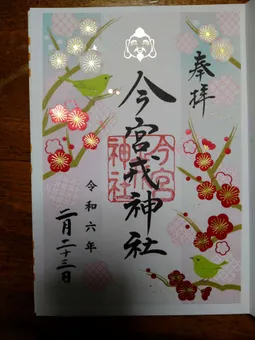 奉拝
今宮戎神社
今宮
戎
神社
令和六年
二月二十三日